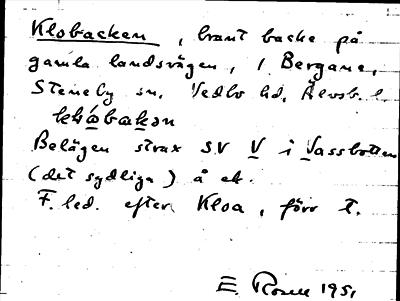 Klobacken, brant backe på
gamla landsvägen, i Bergane,
Steneby sn, Vedbo hd, Älvsb. l.
klỏ́bakən
Belägen strax SV V i Vassbotten
(det sydliga) å ek.
F. led. efter Kloa, förr t.
E. Rosell 1951